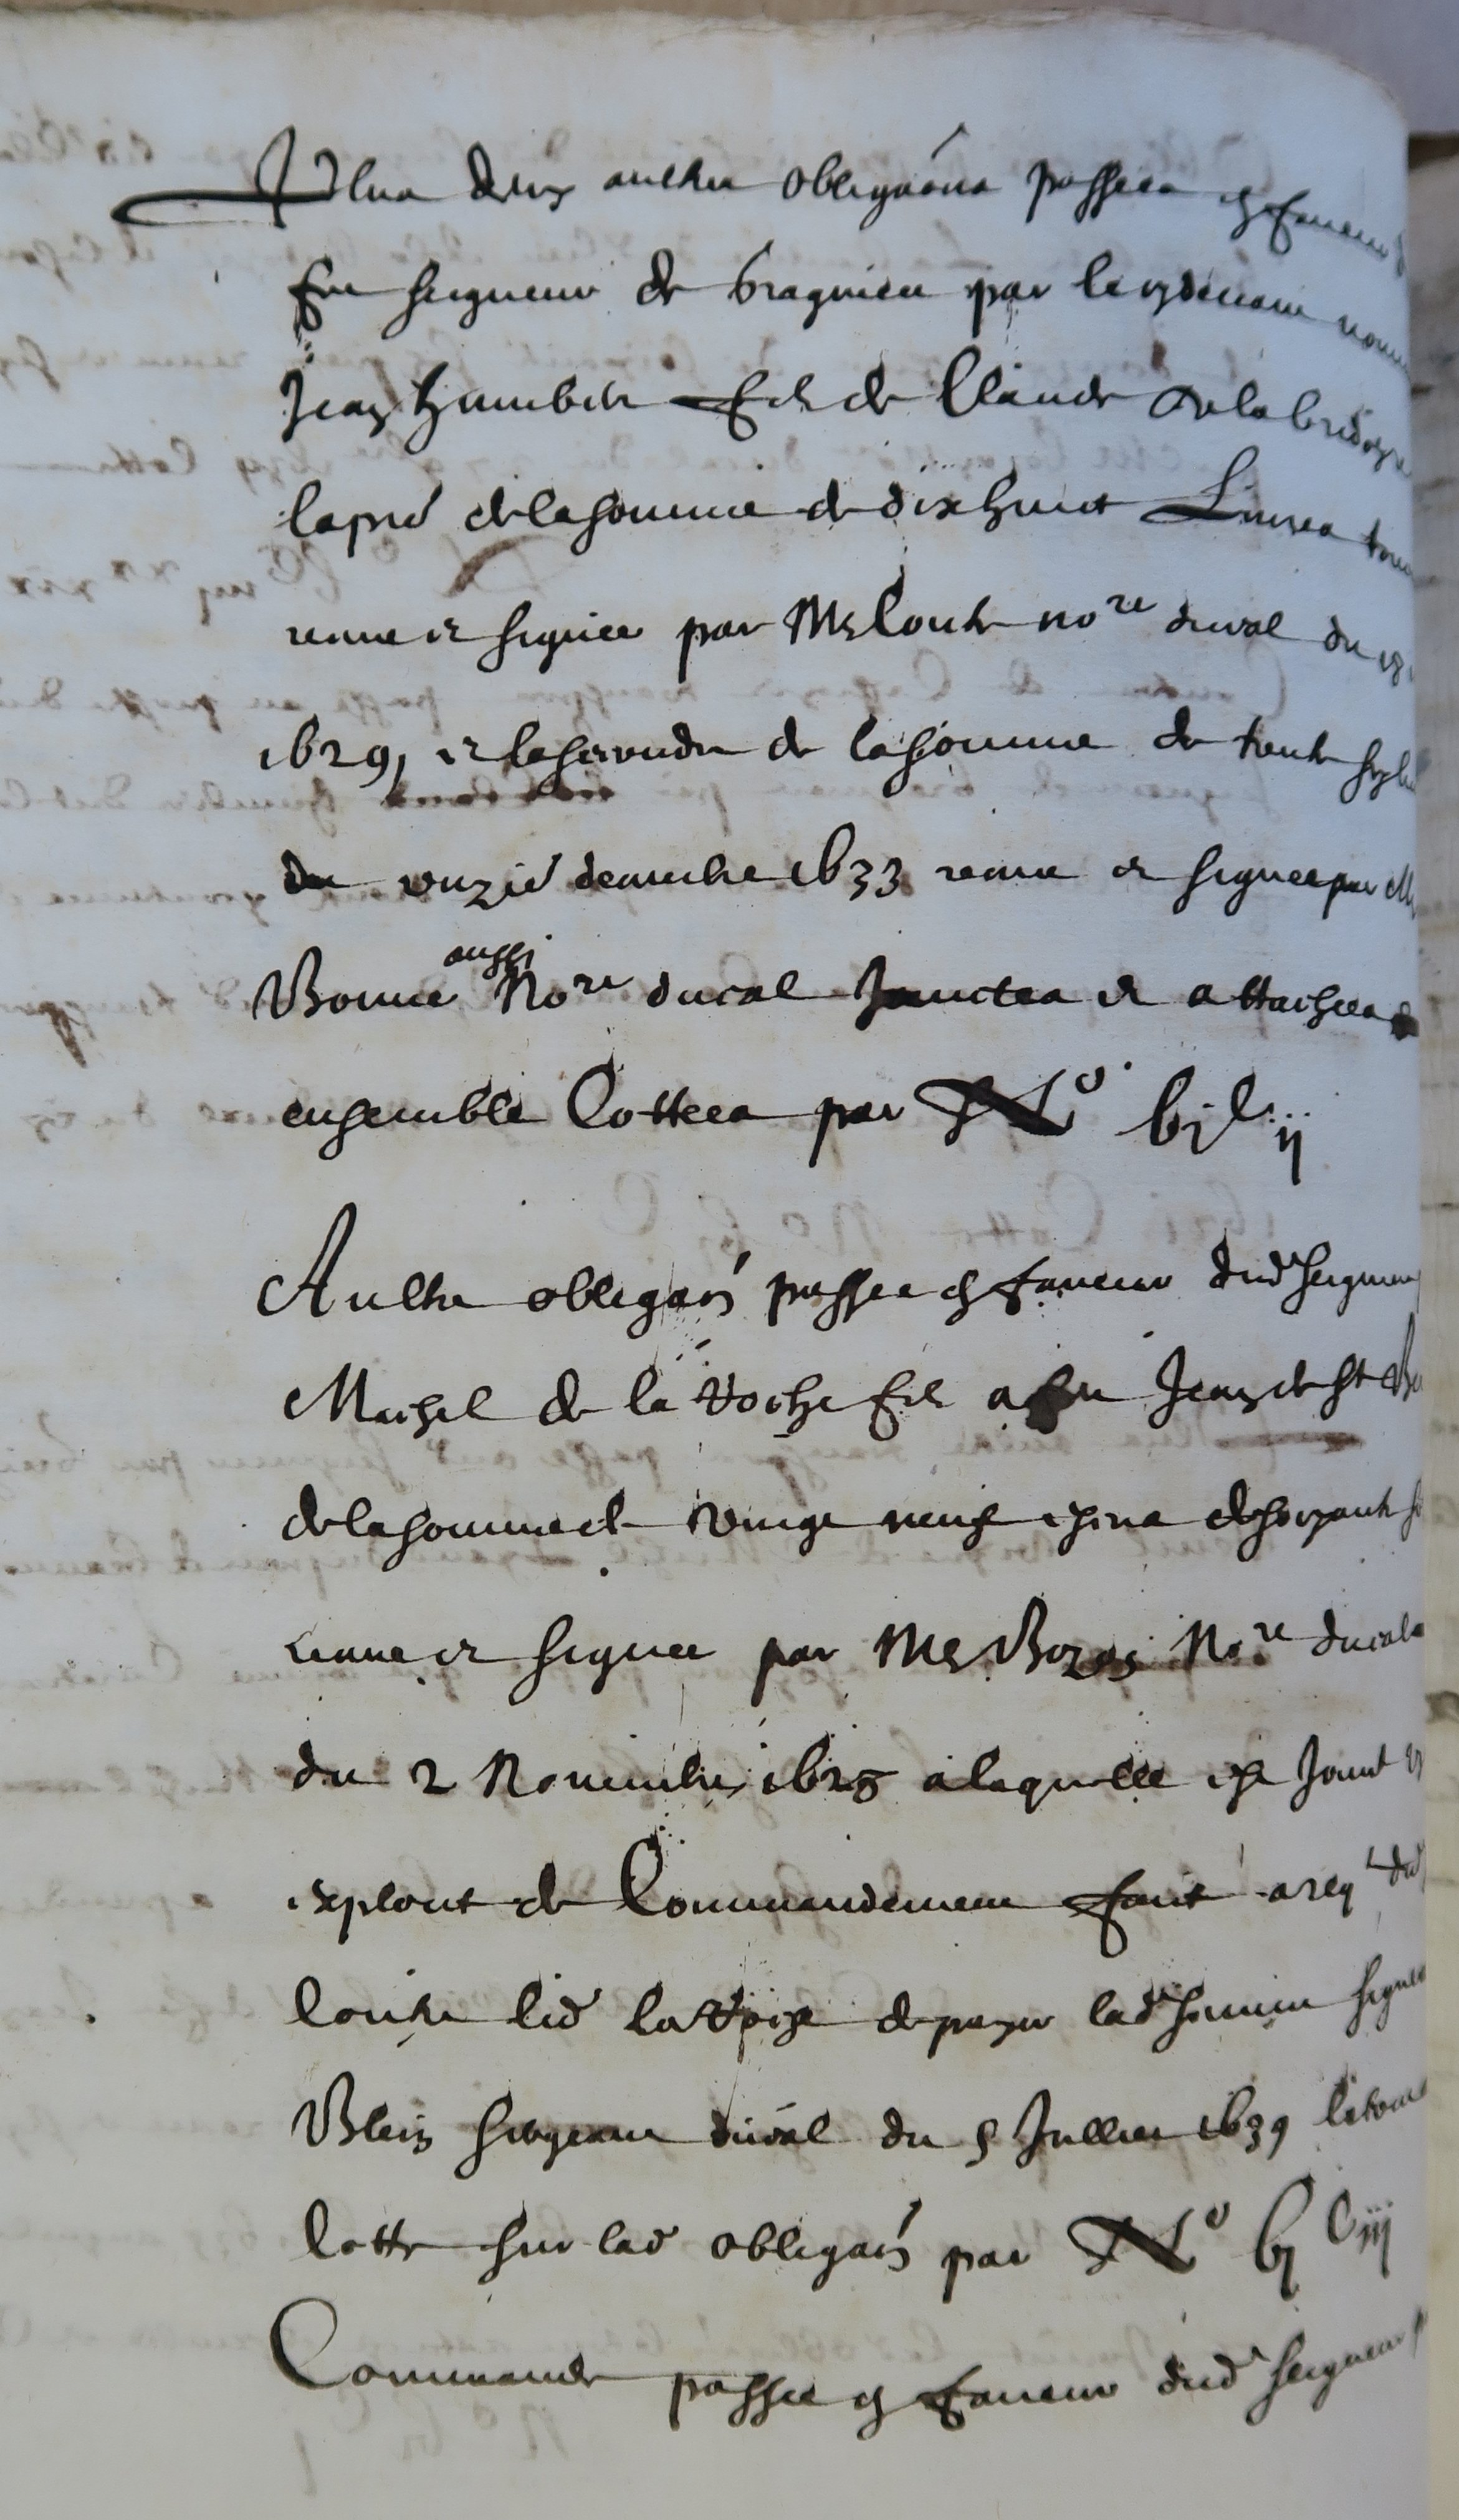 Plus deux aultres obligaõns passees en faueur d
feu seigneur de bragnieu par le cydeuant nom
Jean humbert filz de Claude de la bridoy
la pre de la somme de dix huict Liures tou
receue et signee par Me Conte nore ducal du
1629, et la seconde de la somme de trente sept
du unzie decembre 1633 receue et signee par M
Bonne aussi Nore ducal Joinctes et attachees
ensemble Cottees par No bjC ij
Aultre obligaõn passee en faueur dud seigneur
Michel de la Roche filz a feu Jean de St B
de la somme de vingt neuf escus de soixante s
receue et signee par Me Bozon Nore ducal
du 2 Nouembre 1625 a laquelle est Joint
exploict de Commandement faict a reqte dud
contre led la Roche de payer lad somme signe
Blein sergent ducal du 5 Juillet 1639
Cotte sur lad obligaõn par No bj Ciij
Commande passee en faueur dud seigneur